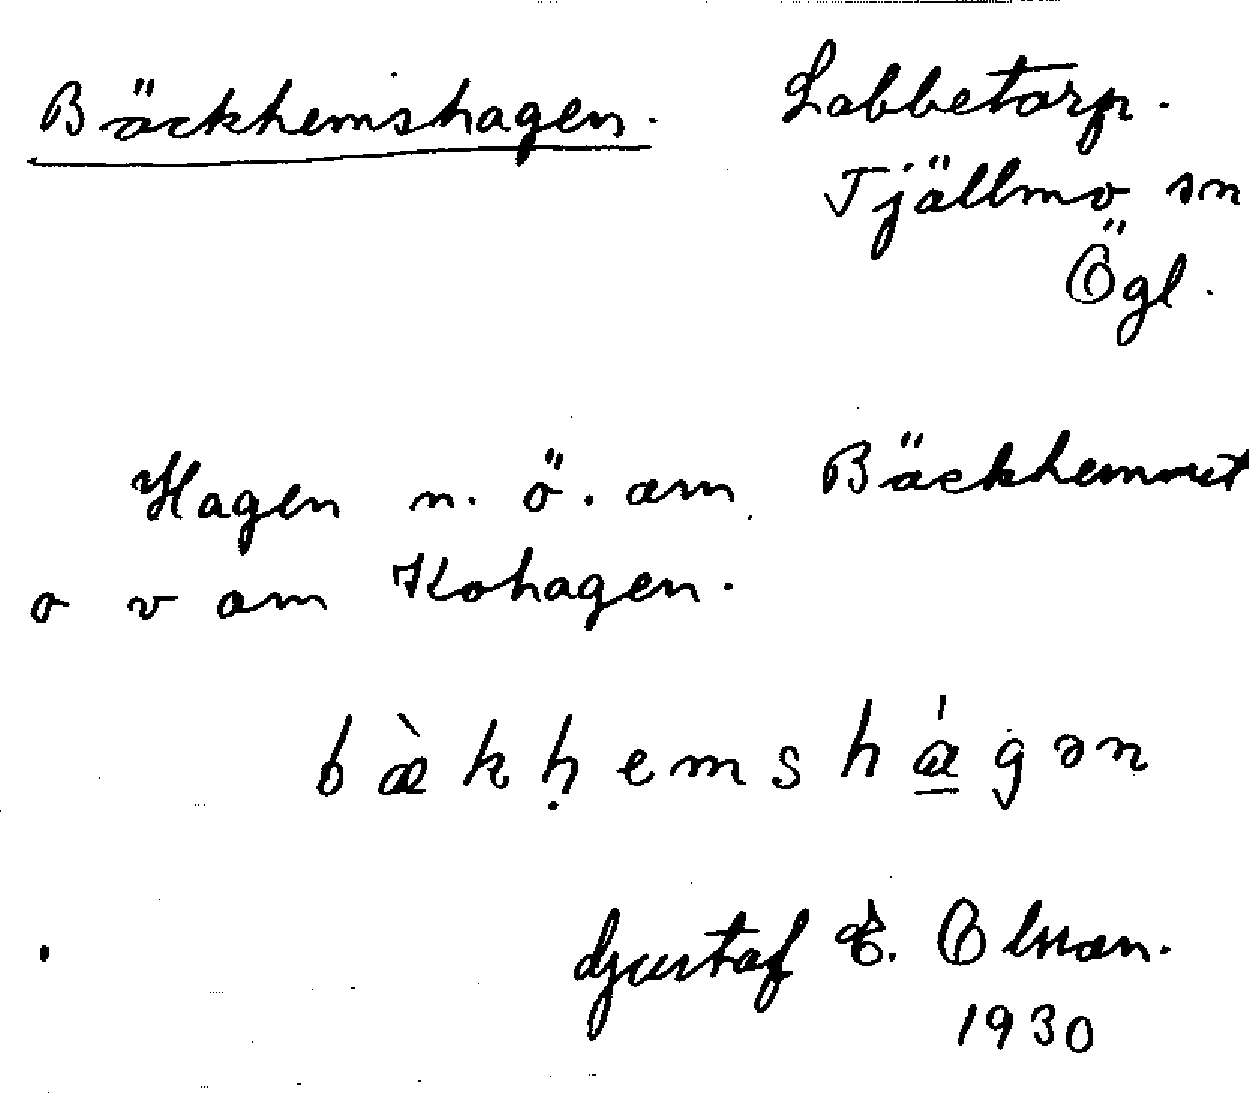 Bäckhemshagen. Labbetorp.
Tjällmo sn
Ögl.
Hagen n. ö. om Bäckhemmet
o v om Kohagen.
bæ̀kḥemshǽ̲gən
Gustaf E. Olsson.
1930